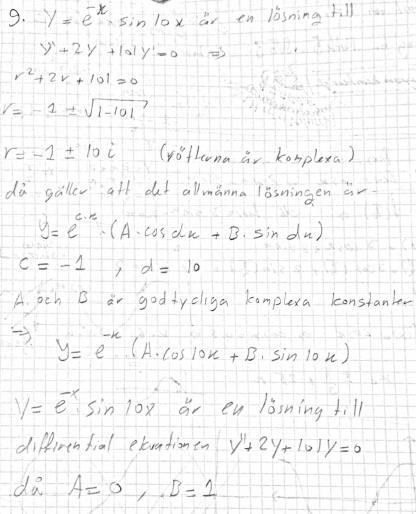 9. y = e^-x · sin 10x är en lösning till
y'' + 2y' + 101y = 0 ⇒
r² + 2r + 101 = 0
r = -1 ± √1-101
r = -1 ± 10i (rötterna är komplexa)
då gäller att det allmänna lösningen är
y = e^c·x · (A · cos dx + B · sin dx)
c = -1 , d = 10
A och B är godtycliga komplexa konstanter
⇒
y = e^-x (A · cos 10x + B · sin 10x)
y = e^-x · sin 10x är en lösning till
differential ekvationen y'' + 2y + 101y = 0
då A = 0 , B = 1